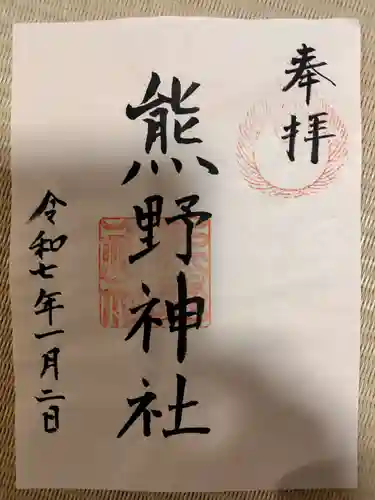 奉拝
熊野神社
令和七年一月二日